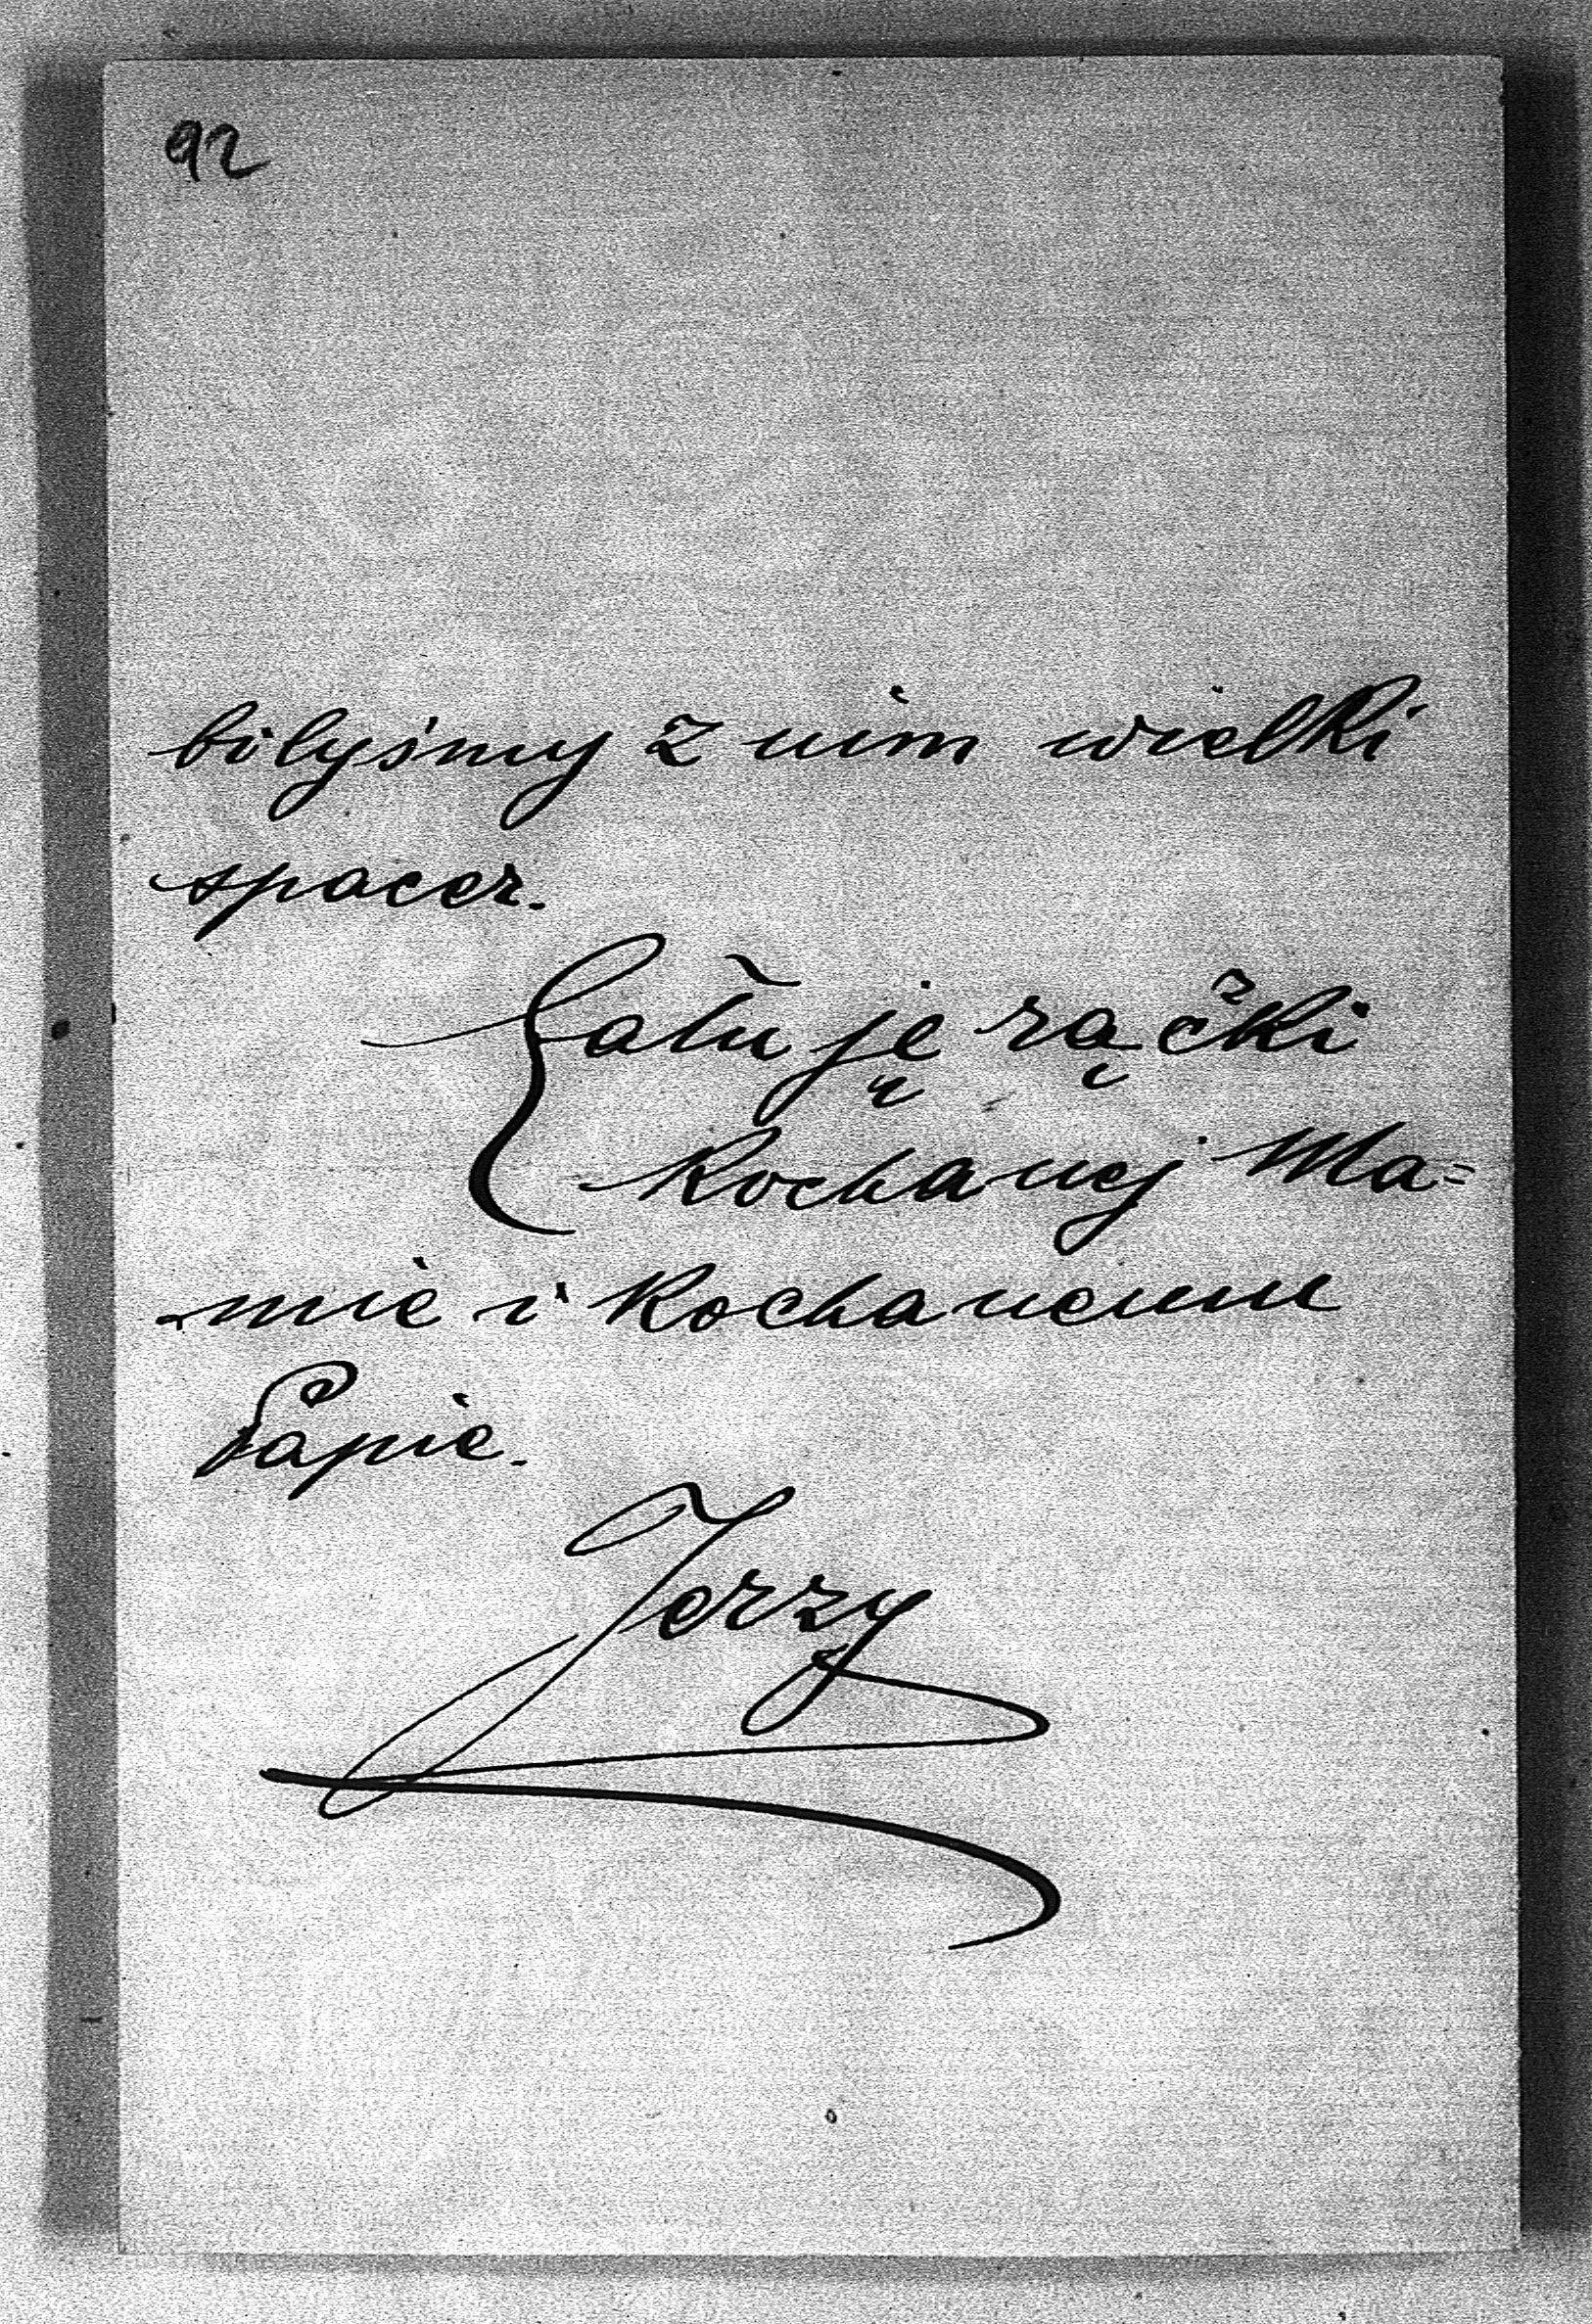 92
biłyśmy z nim wielki
spacer.
Całuję rączki
kochanej Ma=
mie i kochanemu
Papie.
Jerzy